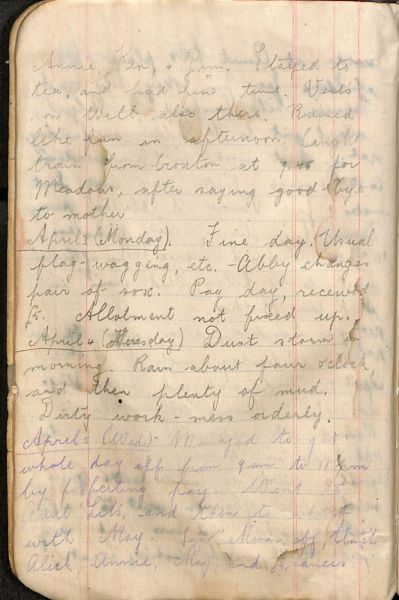 Annie, Ken, & Jim. Stayed to
tea, and had fine time. Verls
son Will also there. Rained
like fun in afternoon. Caught
train from Croxton at 9.48 for
Meadows, after saying good-by
to mother
April 3 (Monday). Fine day. Usual
flag-wagging, etc. - Abby changes
pair of sox. Pay day, received
£5. Allotment not fixed up.
April 4 (Tuesday) Dust storm in
morning. Rain about four o'clock,
and then plenty of mud.
Dirty work - mess orderly.
April 5 (Wed). Managed to get
whole day off from 9 am to 11 pm
by forfeiting pay. Went to
Aunt and then to
with May. off,
Alick Annie, May, and Francis